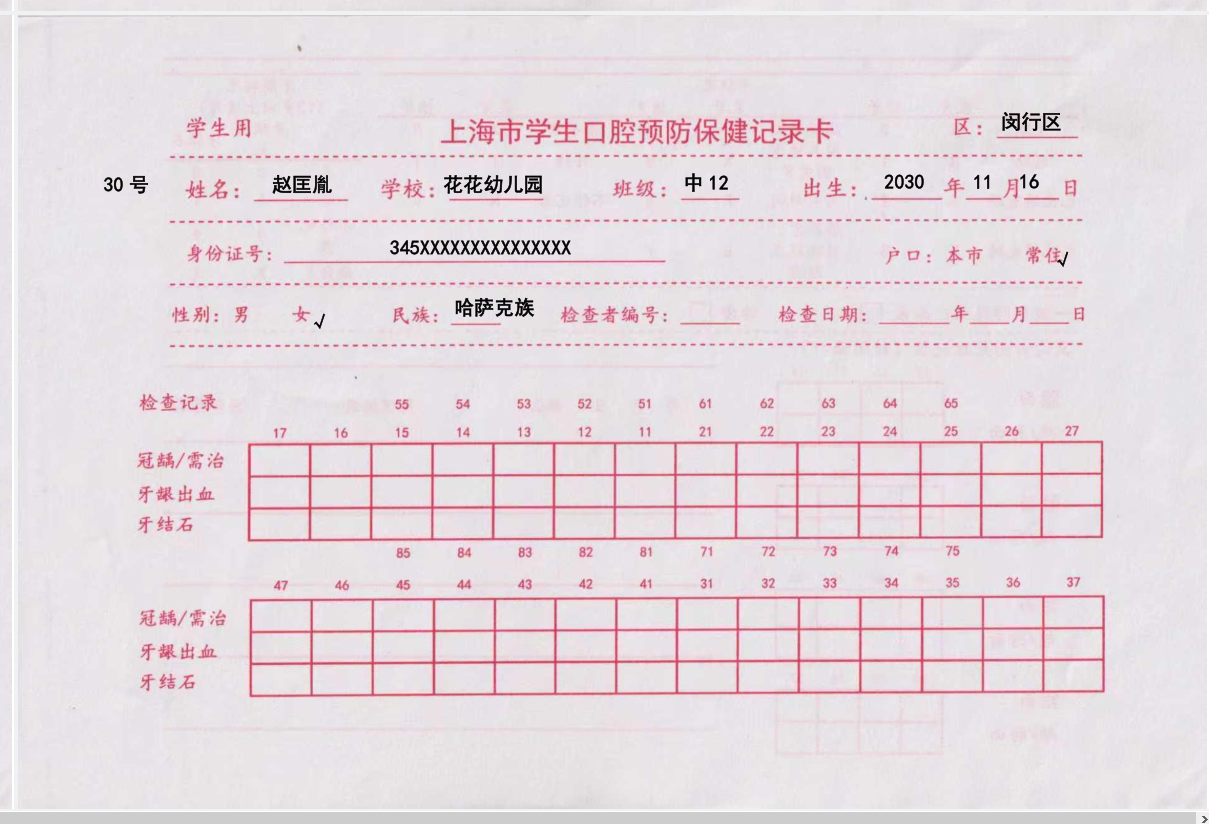 学生用 上海市学生口腔预防保健记录卡 区： 闵行区
30 号 姓名： 赵匡胤 学校： 花花幼儿园 班级： 中 12 出生： 2030 年 11 月 16 日
身份证号： 345XXXXXXXXXXXXXXX 户口：本市 常住√
性别：男 女√ 民族： 哈萨克族 检查者编号： 检查日期： 年 月 日
检查记录 55 54 53 52 51 61 62 63 64 65
17 16 15 14 13 12 11 21 22 23 24 25 26 27
冠龋/需治
牙龈出血
牙结石
85 84 83 82 81 71 72 73 74 75
47 46 45 44 43 42 41 31 32 33 34 35 36 37
冠龋/需治
牙龈出血
牙结石